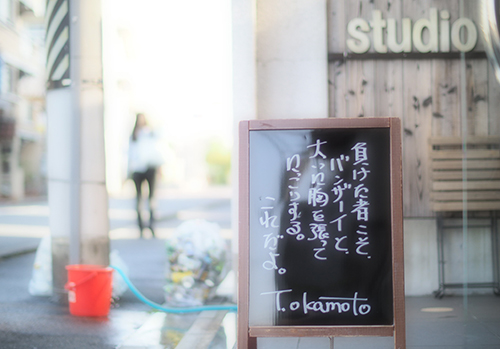 studio
負けた者こそ、
バンザーイと、
大いに胸を張って
にっこりする。
これだよ。
T.okamoto